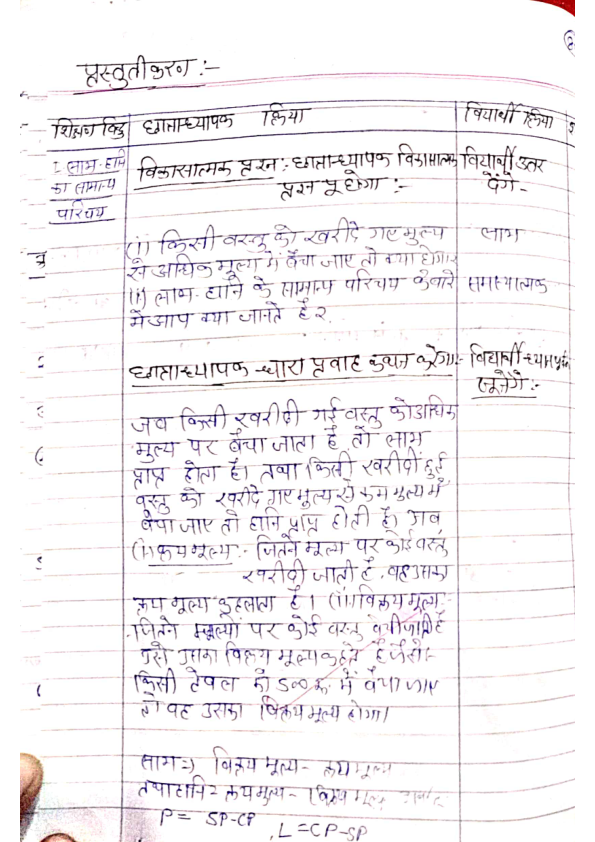 प्रस्तुतीकरण :-
शिक्षण बिंदु
छात्राध्यापक क्रिया
विद्यार्थी क्रिया
1 लाभ-हानि
का सामान्य
परिचय
विकासात्मक प्रश्न :- छात्राध्यापक विकासात्मक
प्रश्न पूछेगा :-
विद्यार्थी उत्तर
देंगे -
(i) किसी वस्तु को खरीदे गए मूल्य
से अधिक मूल्य में बेचा जाए तो क्या होगा?
लाभ
(ii) लाभ-हानि के सामान्य परिचय के बारे
में आप क्या जानते हैं?
समस्यात्मक
छात्राध्यापक धारा प्रवाह कथन करेगा:-
विद्यार्थी ध्यानपूर्वक
सुनेंगे :-
जब किसी खरीदी गई वस्तु को अधिक
मूल्य पर बेचा जाता है तो लाभ
प्राप्त होता है। तथा किसी खरीदी हुई
वस्तु को खरीदे गए मूल्य से कम मूल्य में
बेचा जाए तो हानि प्राप्त होती है।
(i) क्रय मूल्य :- जितने मूल्य पर कोई वस्तु
खरीदी जाती है, वह उसका
क्रय मूल्य कहलाता है। (ii) विक्रय मूल्य:-
जितने मूल्यों पर कोई वस्तु बेची जाती है
उसे उसका विक्रय मूल्य कहते हैं जैसे:-
किसी टेबल को 500 रु. में बेचा जाए
तो वह उसका विक्रय मूल्य होगा।
लाभ => विक्रय मूल्य - क्रय मूल्य
तथा हानि = क्रय मूल्य - विक्रय मूल्य
P = SP-CP
, L = CP-SP